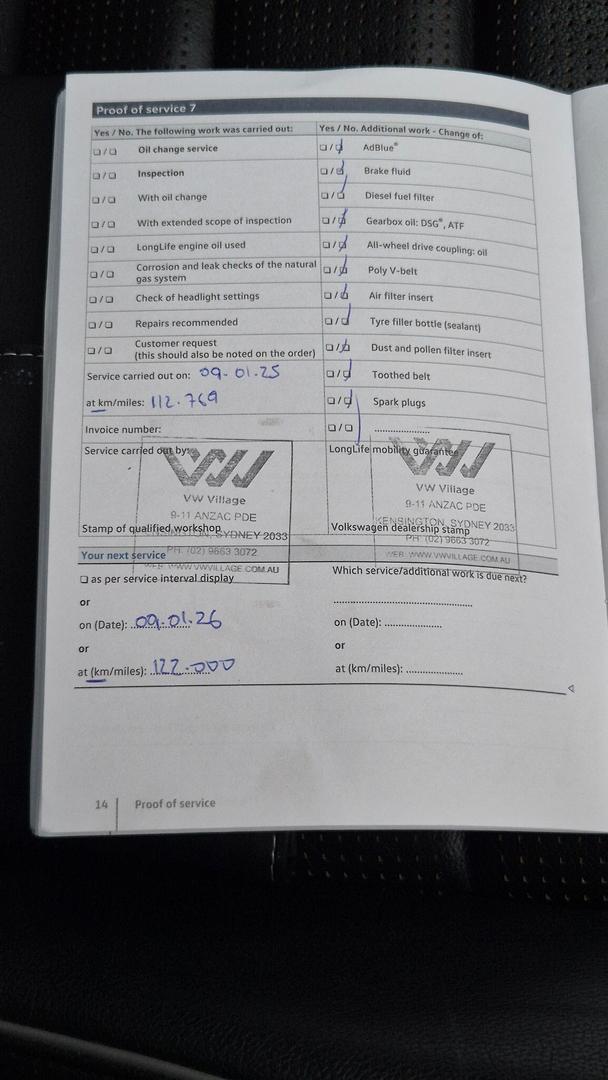 Proof of service 7
Yes / No. The following work was carried out:
Oil change service
Inspection
With oil change
With extended scope of inspection
LongLife engine oil used
Corrosion and leak checks of the natural
gas system
Check of headlight settings
Repairs recommended
Customer request
(this should also be noted on the order)
Service carried out on: 09.01.25
at km/miles: 112.769
Invoice number:
Service carried out by:
VW Village
9-11 ANZAC PDE
KENSINGTON, SYDNEY 2033
Stamp of qualified workshop
PH: (02) 9663 3072
WEB: WWW.VWVILLAGE.COM.AU
Yes / No. Additional work - Change of:
AdBlue®
Brake fluid
Diesel fuel filter
Gearbox oil: DSG®, ATF
All-wheel drive coupling: oil
Poly V-belt
Air filter insert
Tyre filler bottle (sealant)
Dust and pollen filter insert
Toothed belt
Spark plugs
....................
LongLife mobility guarantee
VW Village
9-11 ANZAC PDE
KENSINGTON, SYDNEY 2033
Volkswagen dealership stamp
PH: (02) 9663 3072
WEB: WWW.VWVILLAGE.COM.AU
Your next service
as per service interval display
or
on (Date): 09.01.26
or
at (km/miles): 122.000
Which service/additional work is due next?
..................................................
on (Date): ....................
or
at (km/miles): ....................
14
Proof of service